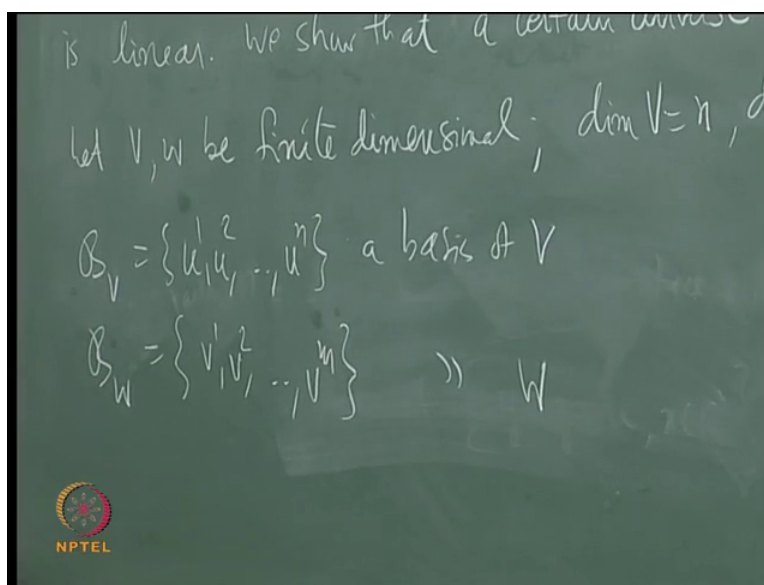 is linear. We show that a certain
Let V, W be finite dimensional; dim V = n,
B_V = {u^1, u^2, .., u^n} a basis of V
B_W = {v^1, v^2, .., v^m} " W
NPTEL